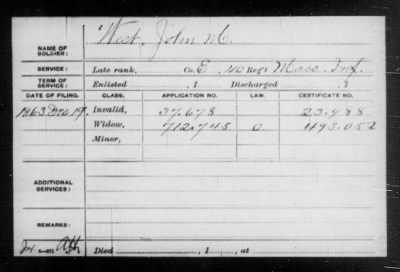 West, John M.
NAME OF SOLDIER:
SERVICE: Late rank, Co. E, 40 Reg't Mass. Inf.
TERM OF SERVICE: Enlisted , 1 Discharged , 1
DATE OF FILING. CLASS. APPLICATION NO. LAW. CERTIFICATE NO.
1863 Dec 19. Invalid, 37.678 23.988
Widow, 712.745 493.052
Minor,
ADDITIONAL SERVICES:
REMARKS:
Died , 1 , at